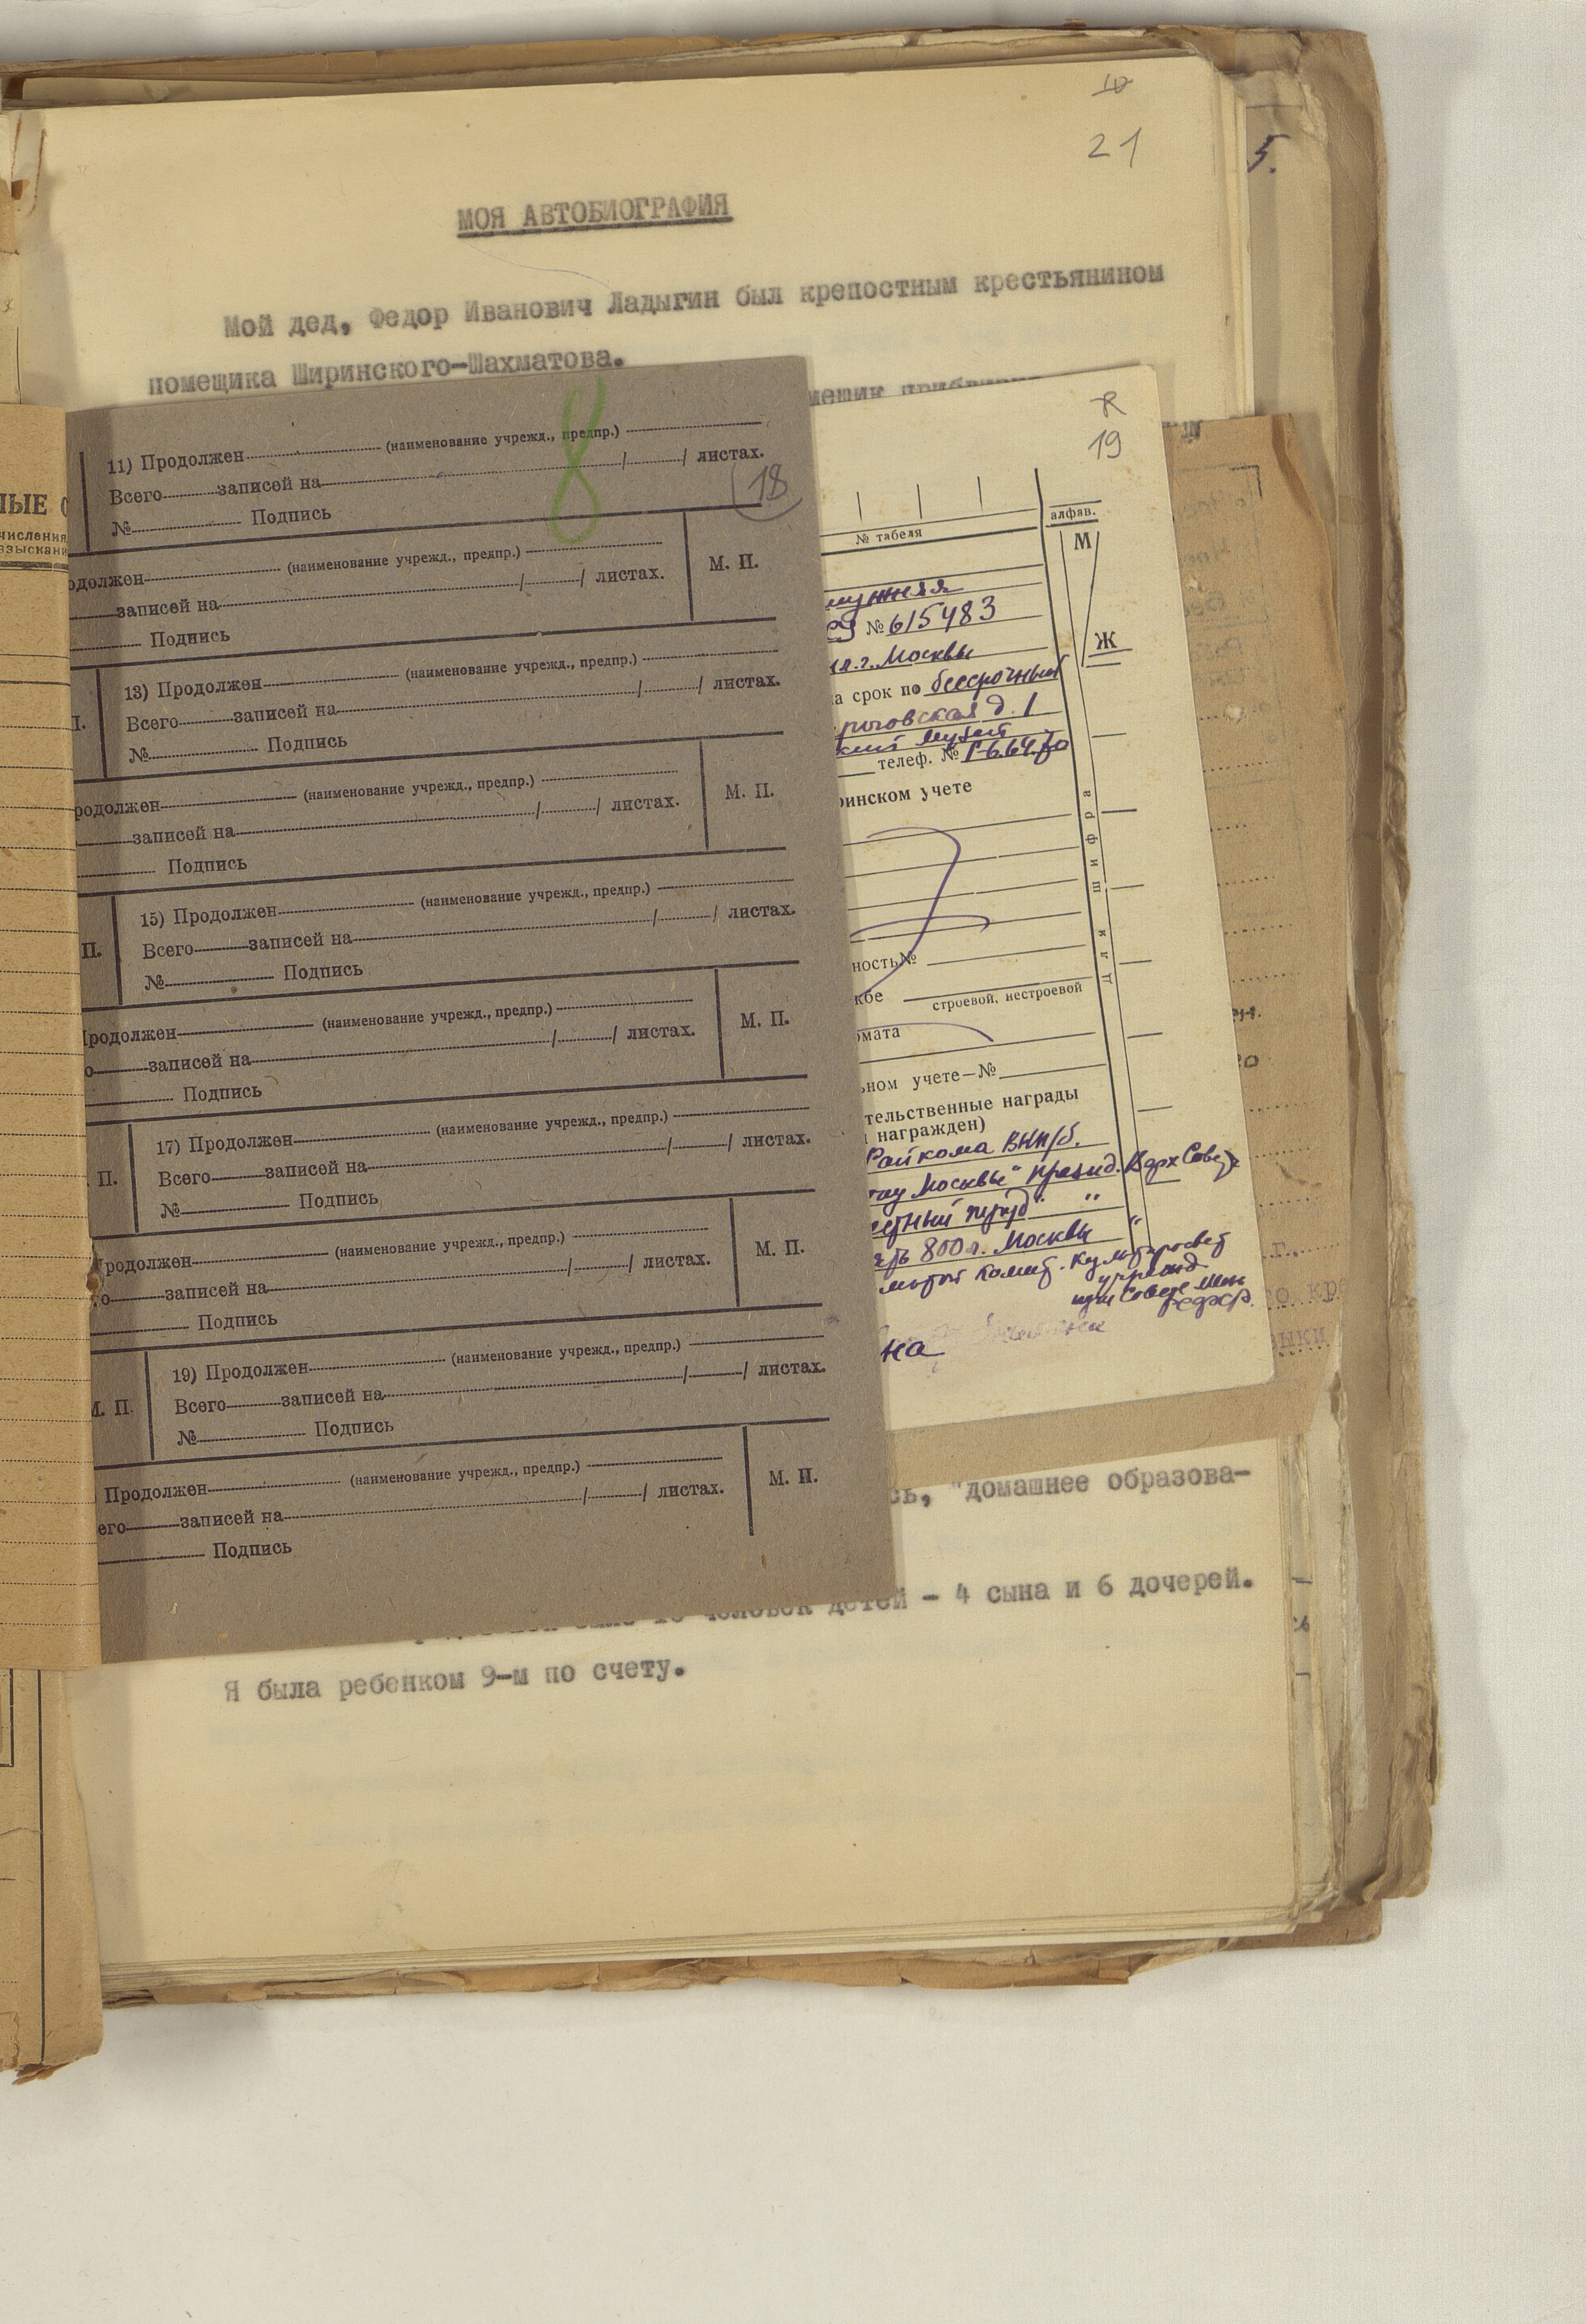 21
5.
МОЯ АВТОБИОГРАФИЯ
Мой дед, Федор Иванович Ладыгин был крепостным крестьянином
помещика Ширинского-Шахматова.
8
18
11) Продолжен (наименование учрежд., предпр.)
Всего записей на / / листах.
№ Подпись
одолжен (наименование учрежд., предпр.)
записей на / / листах.
Подпись
М. П.
13) Продолжен (наименование учрежд., предпр.)
Всего записей на / / листах.
№ Подпись
родолжен (наименование учрежд., предпр.)
записей на / / листах.
Подпись
М. П.
П.
15) Продолжен (наименование учрежд., предпр.)
Всего записей на / / листах.
№ Подпись
родолжен (наименование учрежд., предпр.)
о записей на / / листах.
Подпись
М. П.
П.
17) Продолжен (наименование учрежд., предпр.)
Всего записей на / / листах.
№ Подпись
родолжен (наименование учрежд., предпр.)
о записей на / / листах.
Подпись
М. П.
М. П.
19) Продолжен (наименование учрежд., предпр.)
Всего записей на / / листах.
№ Подпись
Продолжен (наименование учрежд., предпр.)
его записей на / / листах.
Подпись
М. П.
19
№ табеля
алфав.
М
Ж
№ 615483
г. Москвы
а срок по бессрочный
д. 1
музей
телеф. №
инском учете
шифра
цгк
ность №
кбе
строевой, нестроевой
омата
ьном учете—№
тельственные награды
награжден)
Райкома ВКП/б.
Москвы" Презид. Верх Совета
" "
800 л. Москвы "
Комит. культпросвет
учрежд
при Совете Мин
РСФСР.
на
сь, "домашнее образова-
человек детей - 4 сына и 6 дочерей.
Я была ребенком 9-м по счету.